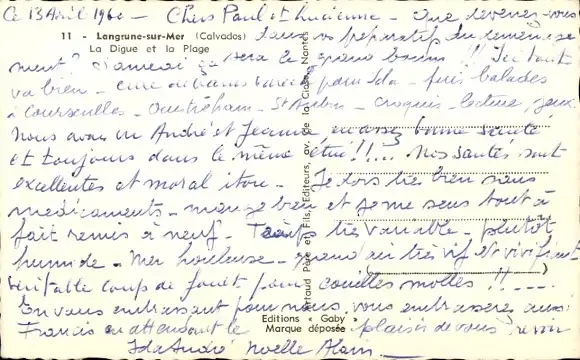 Ce 13 Avril 1960 - Chers Paul et Lucienne - Que devenez-vous
11 - Langrune-sur-Mer (Calvados) dans vos préparatifs du
La Digue et la Plage
sera le grand !! Ici tout
va bien - cure de bains pour Ida - puis balades
à Courseulles - Ouistreham - St Aubin - croquis lecture, jeux
Nous avons vu André et Jeanne en assez bonne santé
et toujours dans le même état !!... Nos santés sont
excellentes et moral itou - Je dors très bien sans
médicaments - mange bien et je me sens tout à
fait remis à neuf - Temps très variable - plutôt
humide - Mer houleuse - grand air très vif et vivifiant
véritable coup de fouet pour couilles molles !! ----
En vous embrassant pour nous, vous embrasserez aussi
Francis en attendant le plaisir de vous
Ida André Noëlle Alain
Editions "Gaby"
Marque déposée
Artaud Père et Fils, Editeurs, av. de la Gare, Nantes